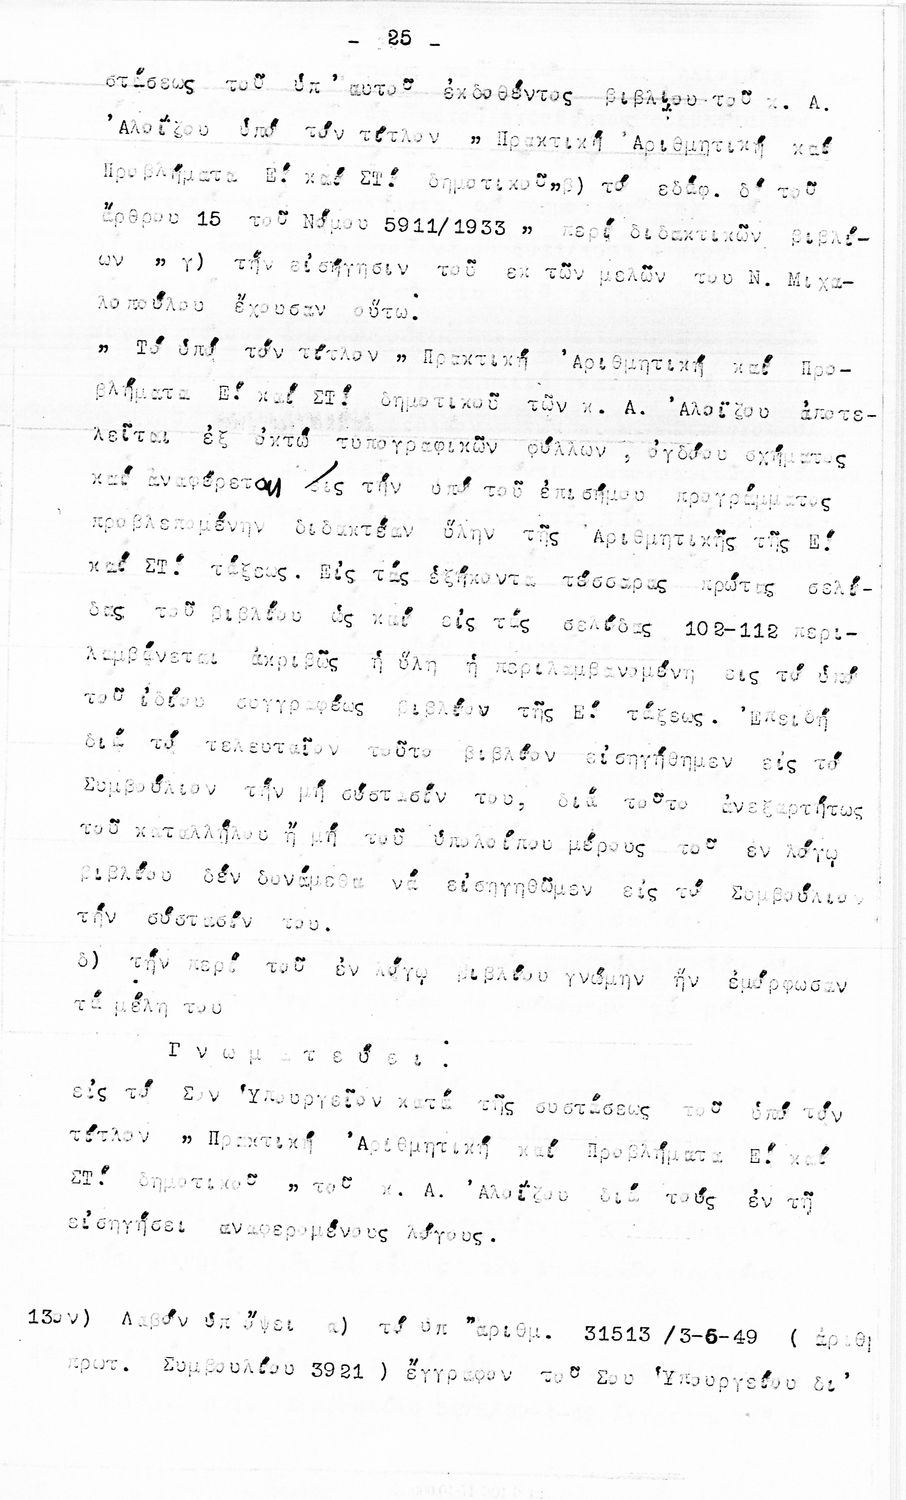 - 25 -
στάσεως τοῦ ὑπ'αυτοῦ ἐκδοθέντος βιβλίου τοῦ κ. Α.
'Αλοΐζου ὑπό τόν τίτλον „ Πρακτική 'Αριθμητική καί
Προβλήματα Ε! καί ΣΤ! δημοτικοῦ„β) τό εδάφ. δ' τοῦ
ἄρθρου 15 τοῦ Νόμου 5911/1933 „ περί διδακτικῶν βιβλί-
ων „ γ) τήν εἰσήγησιν τοῦ εκ τῶν μελῶν του Ν. Μιχα-
λοπούλου ἔχουσαν οὕτω:
„ Τό ὑπό τόν τίτλον „ Πρακτική 'Αριθμητική καί Προ-
βλήματα Ε! καί ΣΤ! δημοτικοῦ τῶν κ. Α. 'Αλοΐζου ἀποτε-
λεῖται ἐξ ὀκτώ τυπογραφικῶν φύλλων , ὀγδόου σχήματος
καί ἀναφέρεται εἰς τήν υπό τοῦ ἐπισήμου προγράμματος
προβλεπομένην διδακτέαν ὕλην τῆς 'Αριθμητικῆς τῆς Ε!
καί ΣΤ! τάξεως. Εἰς τάς ἑξήκοντα τέσσαρας πρώτας σελί-
δας τοῦ βιβλίου ὡς καί εἰς τάς σελίδας 102-112 περι-
λαμβάνεται ἀκριβῶς ἡ ὕλη ἡ περιλαμβανομένη εις τό ὑπό
τοῦ ἰδίου συγγραφέως βιβλίον τῆς Ε! τάξεως. 'Επειδή
διά τό τελευταῖον τοῦτο βιβλίον εἰσηγήθημεν εἰς τό
Συμβούλιον τήν μή σύστασίν του, διά τοῦτο ἀνεξαρτήτως
τοῦ καταλλήλου ἤ μή τοῦ ὑπολοίπου μέρους τοῦ εν λόγῳ
βιβλίου δέν δυνάμεθα νά εἰσηγηθῶμεν εἰς τό Συμβούλιον
τήν σύστασίν του.
δ) τήν περί τοῦ ἐν λόγῳ βιβλίου γνώμην ἥν ἐμόρφωσαν
τά μέλη του
Γ ν ω μ α τ ε ύ ε ι :
εἰς τό Σον 'Υπουργεῖον κατά τῆς συστάσεως τοῦ ὑπό τόν
τίτλον „ Πρακτική 'Αριθμητική καί Προβλήματα Ε! καί
ΣΤ! δημοτικοῦ „ τοῦ κ. Α. 'Αλοΐζου διά τούς ἐν τῇ
εἰσηγήσει αναφερομένους λόγους.
13ον) Λαβόν ὑπ ὄψει α) τό ὑπ "αριθμ. 31513 /3-6-49 ( ἀριθμ
πρωτ. Συμβουλίου 3921 ) ἔγγραφον τοῦ Σου 'Υπουργείου δι'